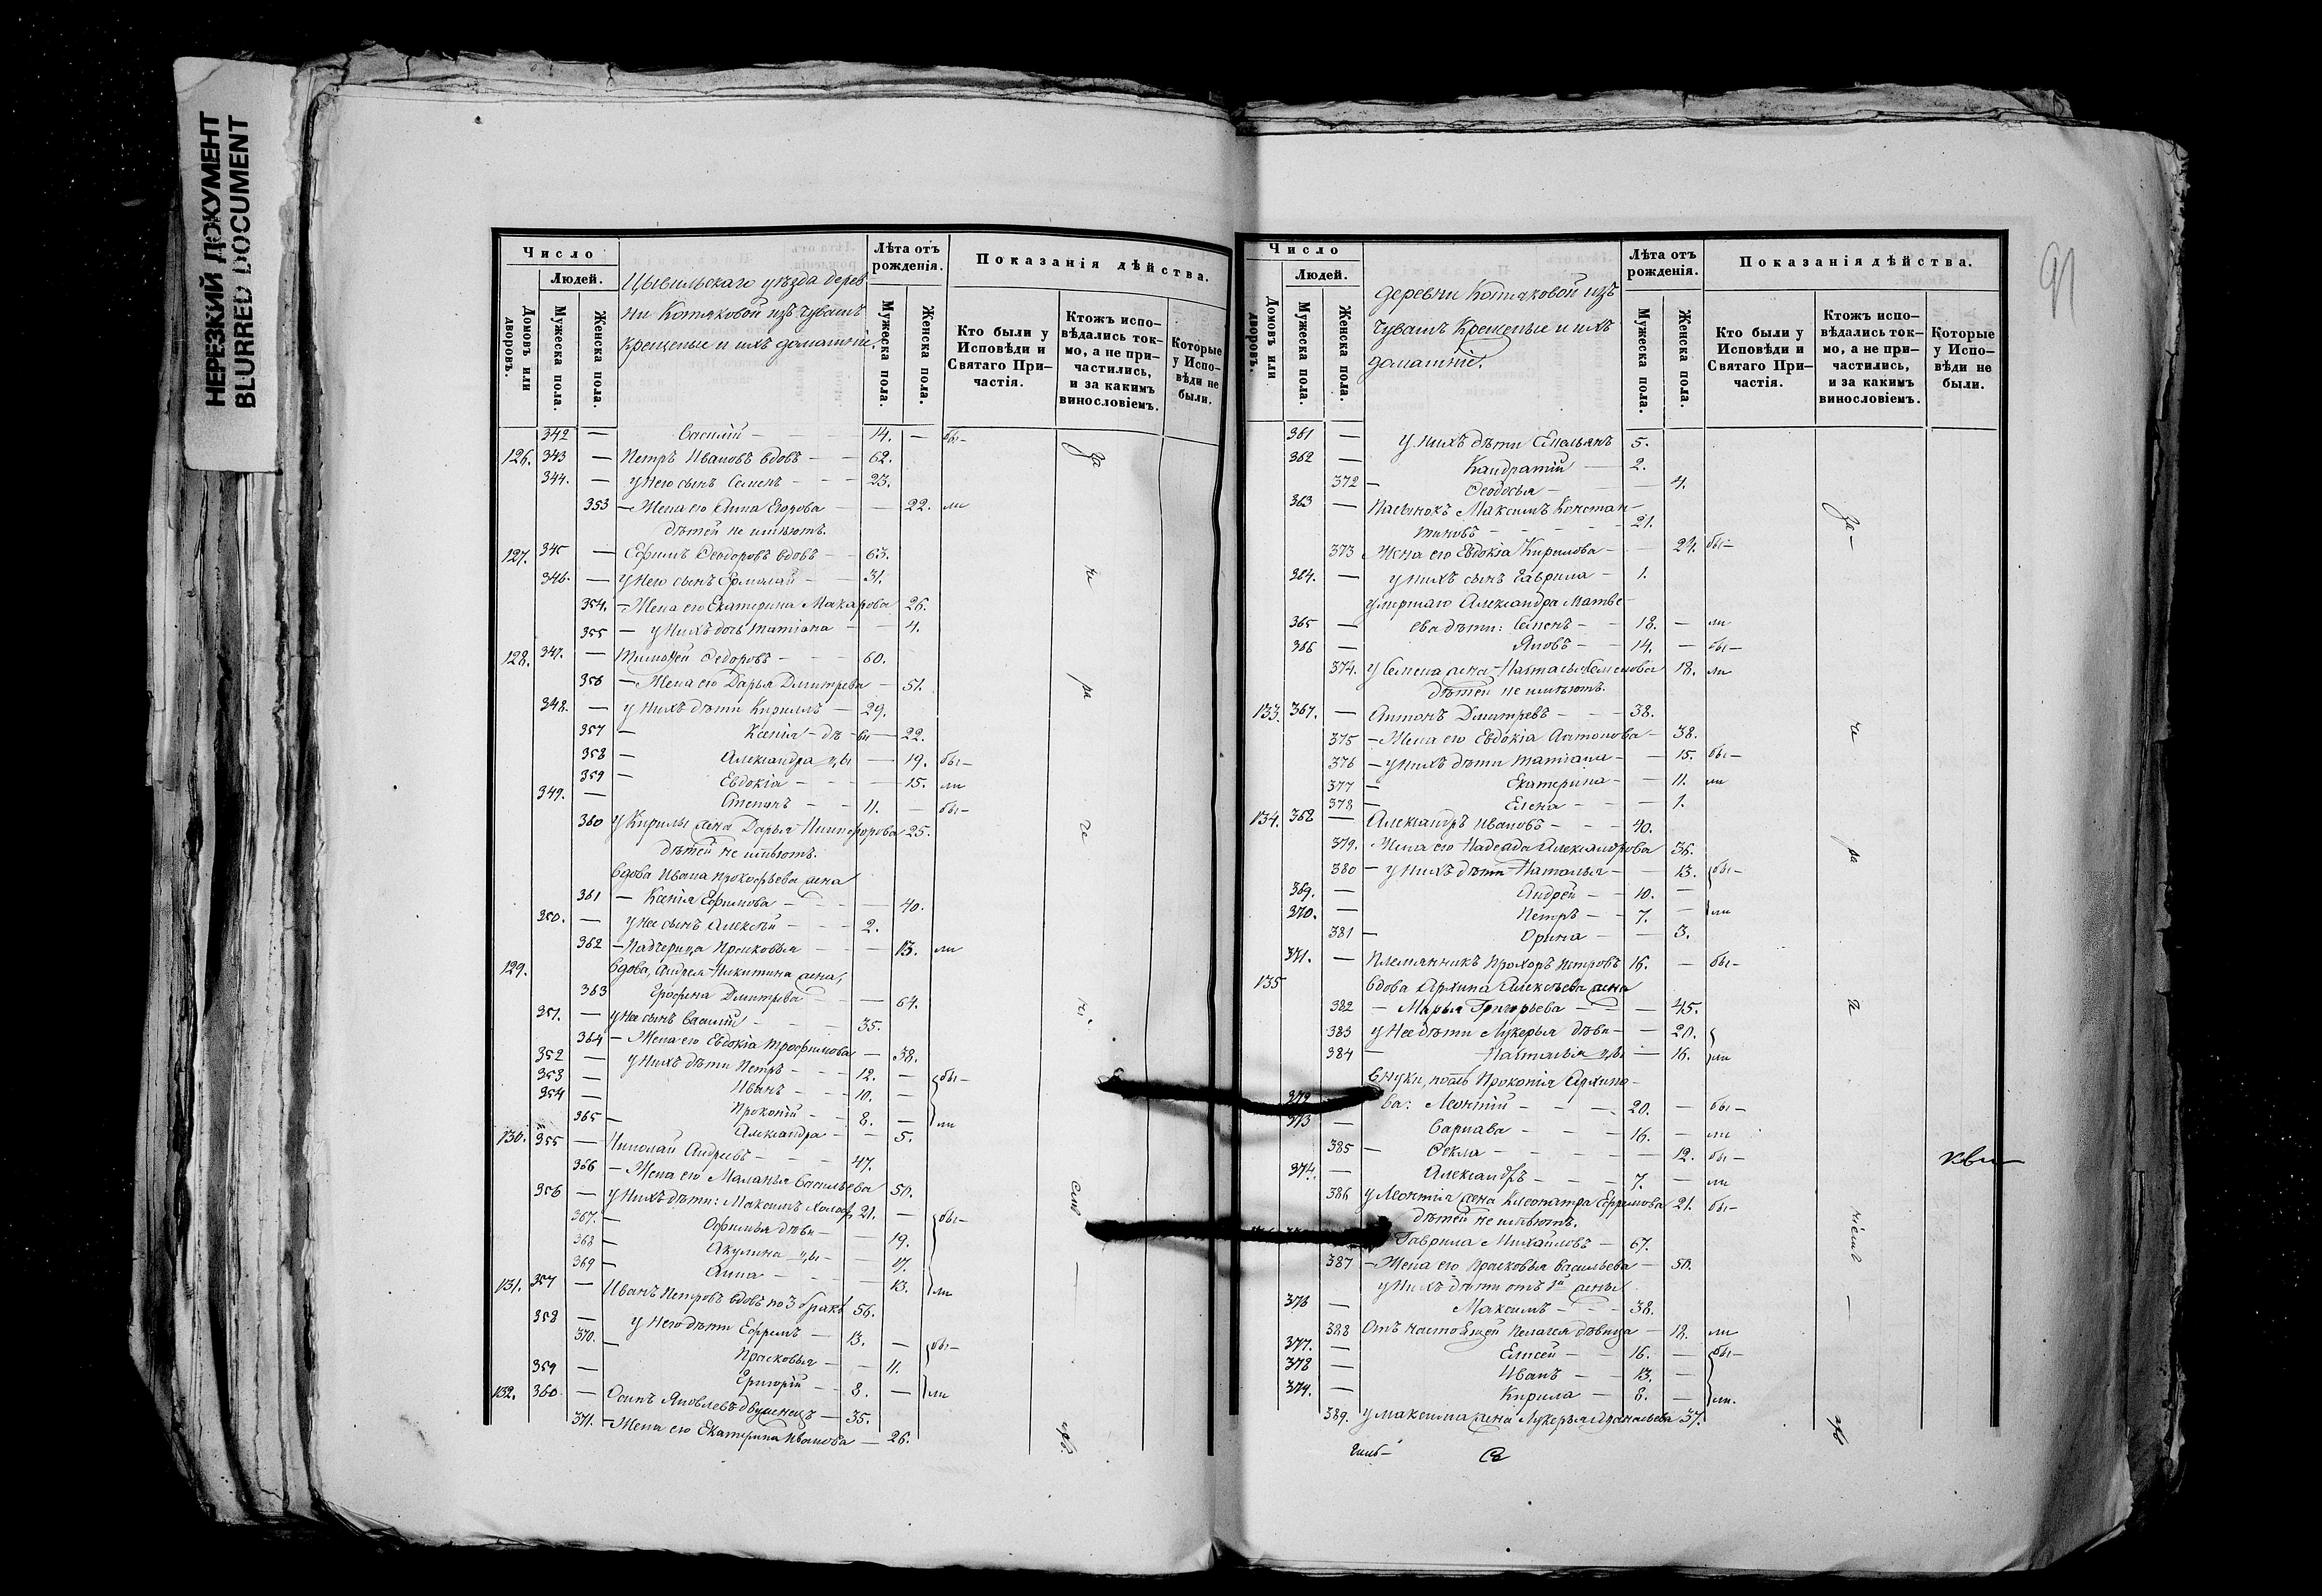 НЕРЕЗКИЙ ДОКУМЕНТ
BLURRED DOCUMENT
Число
Людей.
Домовъ или дворовъ.
Мужеска пола.
Женска пола.
Цывильскаго уѣзда дерев
ни Котяковой изъ чувашъ
крещеные и ихъ домашніе.
Лѣта отъ рожденія.
Мужеска пола.
Женска пола.
Показанія дѣйства.
Кто были у Исповѣди и Святаго При-
частія.
Ктожъ испо-
вѣдались ток-
мо, а не при-
частились,
и за какимъ
винословіемъ.
Которые
у Испо-
вѣди не
были.
342 — Василій — 14. — бы—
126. 343 — Петръ Ивановъ вдовъ — 62.
344. — у него сынъ Семенъ — 23.
353 — Жена его Анна Егорова — 22. ли
дѣтей не имѣютъ.
127. 345 — Ефимъ Ѳеодоровъ вдовъ — 63.
346. — у него сынъ Ермолай — 31.
354. — Жена его Екатерина Макарова 26.
355 — у нихъ дочь Татіана — 4.
128. 347. — Тимоѳей Ѳедоровъ — 60.
356 — Жена его Дарья Дмитрева — 51.
348. — у нихъ дѣти Кириллъ — 29.
357 — Ксенія — дѣ — вы — 22.
358 — Александра — 19. бы—
359 — Евдокія — 15. ли
349. — Степанъ — 11. — бы—
360 у Кирилы жена Дарья Никифорова 25.
дѣтей не имѣютъ.
Вдова Ивана Прокофьева жена
361 — Ксенія Ефимова — 40.
350. — у нее сынъ Алексѣй — 2.
362 — Падчерица Прасковья — 13. ли
129. Вдова, Андрея Никитина жена,
363 Ерофина Дмитрева — 64.
351. — у нее сынъ Василій — 35.
364 — Жена его Евдокія Трофимова — 38.
352 — у нихъ дѣти Петръ — 12. — бы—
353 — Иванъ — 10. —
354 — Прокопій — 8. — ли
365 — Александра — 5.
130. 355 — Николай Андреевъ — 47.
366 — Жена его Маланья Васильева 50.
356 — у нихъ дѣти: Максимъ холост 21. — бы—
367. — Офимья дѣви — 19.
368 — Акулина — 17.
369 — Анна — 13. ли
131. 357 — Иванъ Петровъ вдовъ по 3 бракѣ 56.
358 — у него дѣти Ефремъ — 13. — бы—
370. — Прасковья — 11.
359 — Григорій — 8. — ли
132. 360 — Осипъ Яковлевъ двуженецъ — 35.
371. — Жена его Екатерина Иванова — 26.
91
Число
Людей.
Домовъ или дворовъ.
Мужеска пола.
Женска пола.
деревни Котяковой изъ
чувашъ крещеные и ихъ
домашніе.
Лѣта отъ рожденія.
Мужеска пола.
Женска пола.
Показанія дѣйства.
Кто были у Исповѣди и Святаго При-
частія.
Ктожъ испо-
вѣдались ток-
мо, а не при-
частились,
и за какимъ
винословіемъ.
Которые
у Испо-
вѣди не
были.
361 — у нихъ дѣти Емельянъ 5.
362 — Кандратій — 2.
372 — Ѳеодосья — 4.
363 — Пасынокъ Максимъ Констан-
тиновъ — 21.
373 Жена его Евдокія Кирилова — 24. бы—
364. — у нихъ сынъ Гаврила — 1.
умершаго Александра Матве-
365 — ева дѣти: Семенъ — 18. — ли
366 — Яковъ — 14. — бы—
374. у Семена жена Наталья Семенова 18. ли
дѣтей не имѣютъ.
133. 367. — Антонъ Дмитревъ — 38.
375 — Жена его Евдокія Антонова — 38.
376 — у нихъ дѣти Татіана — 15. бы—
377 — Екатерина — 11. ли
378 — Елена — 1.
134. 368 — Александръ Ивановъ — 40.
379. Жена его Надежда Александрова 36.
380 — у нихъ дѣти Наталья — 13. бы—
369. — Андрей — 10. —
370. — Петръ — 7. — ли
381 — Орина — 3.
371. — Племянникъ Прохоръ Петровъ 16. — бы—
135 Вдова Архипа Алексѣева жена
382 — Марья Григорьева — 45.
383 у нее дѣти Лукерья дѣви — 20.
384 — Наталья — 16. ли
внуки, Прокопія Архипо-
372 ва: Леонтій — 20. — бы—
373 — Варнава — 16. — ли
385 — Ѳекла — 12. бы—
374. — Александръ — 7. — ли
386 у Леонтія жена Клеопатра Ефремова 21. бы—
дѣтей не имѣютъ.
Гаврила Михайловъ — 67.
387 — Жена его Прасковья Васильева — 50.
у нихъ дѣти отъ 1й жены
376 — Максимъ — 38.
388 Отъ настоящей Пелагея дѣвица — 18. ли
377. — Елисей — 16. — бы—
378 — Иванъ — 13. —
379. — Кирила — 8. — ли.
389. у Максима жена Лукерья Аѳанасьева 37.